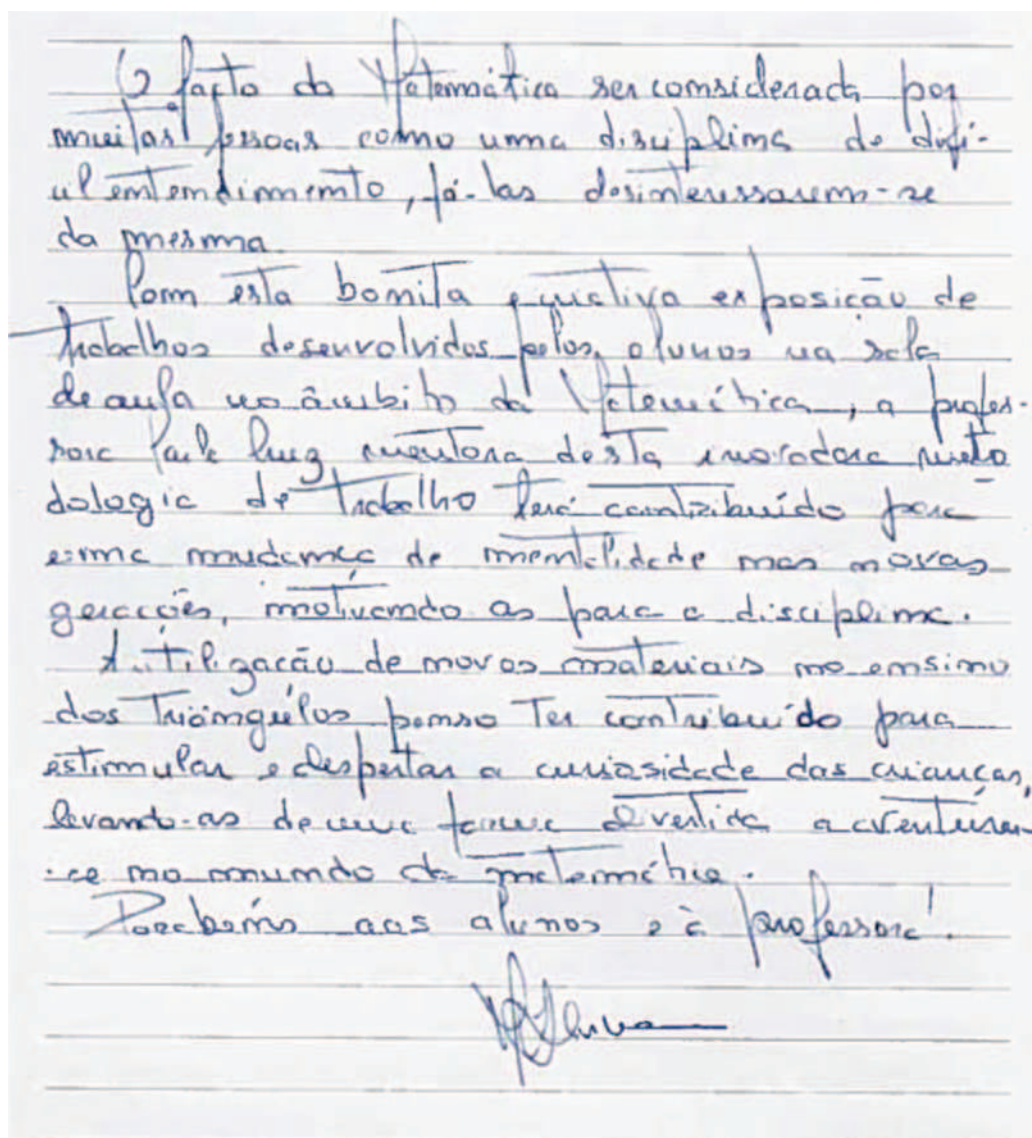 O facto da Matemática ser considerada por
muitas pessoas como uma disciplina de difí-
cil entendimento, fá-las desinteressarem-se
da mesma.
Com esta bonita e criativa exposição de
trabalhos desenvolvidos pelos alunos na sala
de aula no âmbito da Matemática, a profes-
sora mentora desta inovadora meto
dologia de trabalho terá contribuído para
uma mudança de mentalidade nas novas
gerações, motivando as para a disciplina.
A utilização de novos materiais no ensino
dos Triângulos penso Ter contribuído para
estimular e despertar a curiosidade das crianças,
levando-as de uma forma divertida a aventurar
-se no mundo da matemática.
Parabéns aos alunos e à professora!